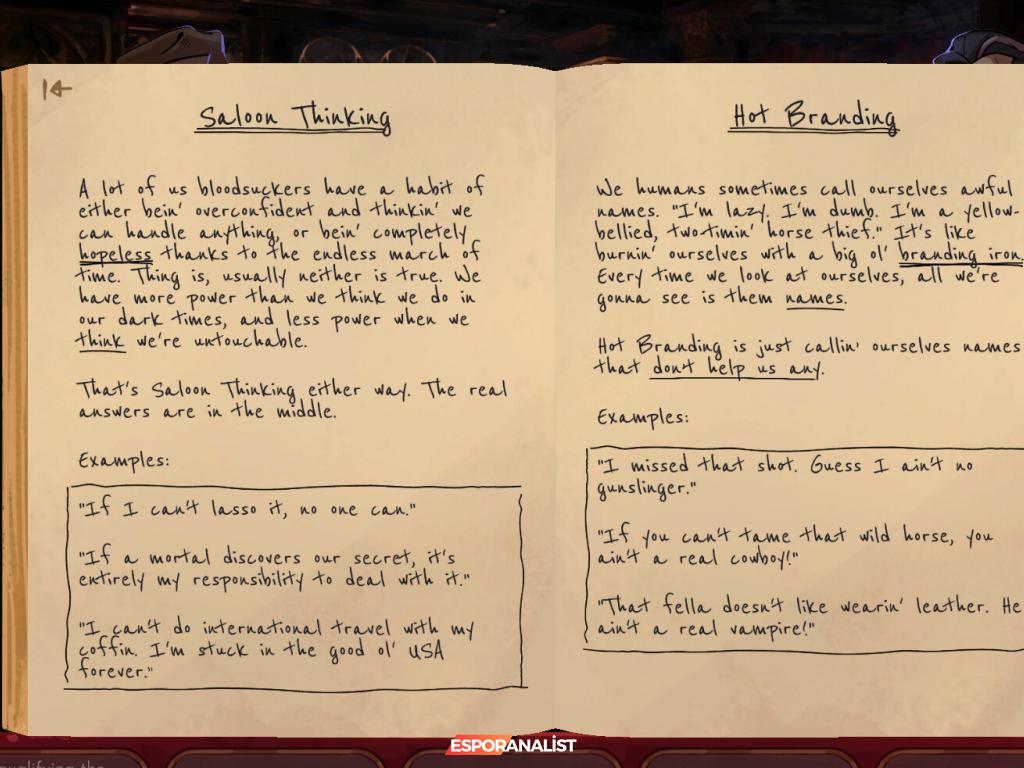 Saloon Thinking
A lot of us bloodsuckers have a habit of
either bein' overconfident and thinkin' we
can handle anything, or bein' completely
hopeless thanks to the endless march of
time. Thing is, usually neither is true. We
have more power than we think we do in
our dark times, and less power when we
think we're untouchable.
That's Saloon Thinking either way. The real
answers are in the middle.
Examples:
"If I can't lasso it, no one can."
"If a mortal discovers our secret, it's
entirely my responsibility to deal with it."
"I can't do international travel with my
coffin. I'm stuck in the good ol' USA
forever."
Hot Branding
We humans sometimes call ourselves awful
names. "I'm lazy. I'm dumb. I'm a yellow-
bellied, two-timin' horse thief." It's like
burnin' ourselves with a big ol' branding iron.
Every time we look at ourselves, all we're
gonna see is them names.
Hot Branding is just callin' ourselves names
that don't help us any.
Examples:
"I missed that shot. Guess I ain't no
gunslinger."
"If you can't tame that wild horse, you
ain't a real cowboy!"
"That fella doesn't like wearin' leather. He
ain't a real vampire!"
ESPORANALİST